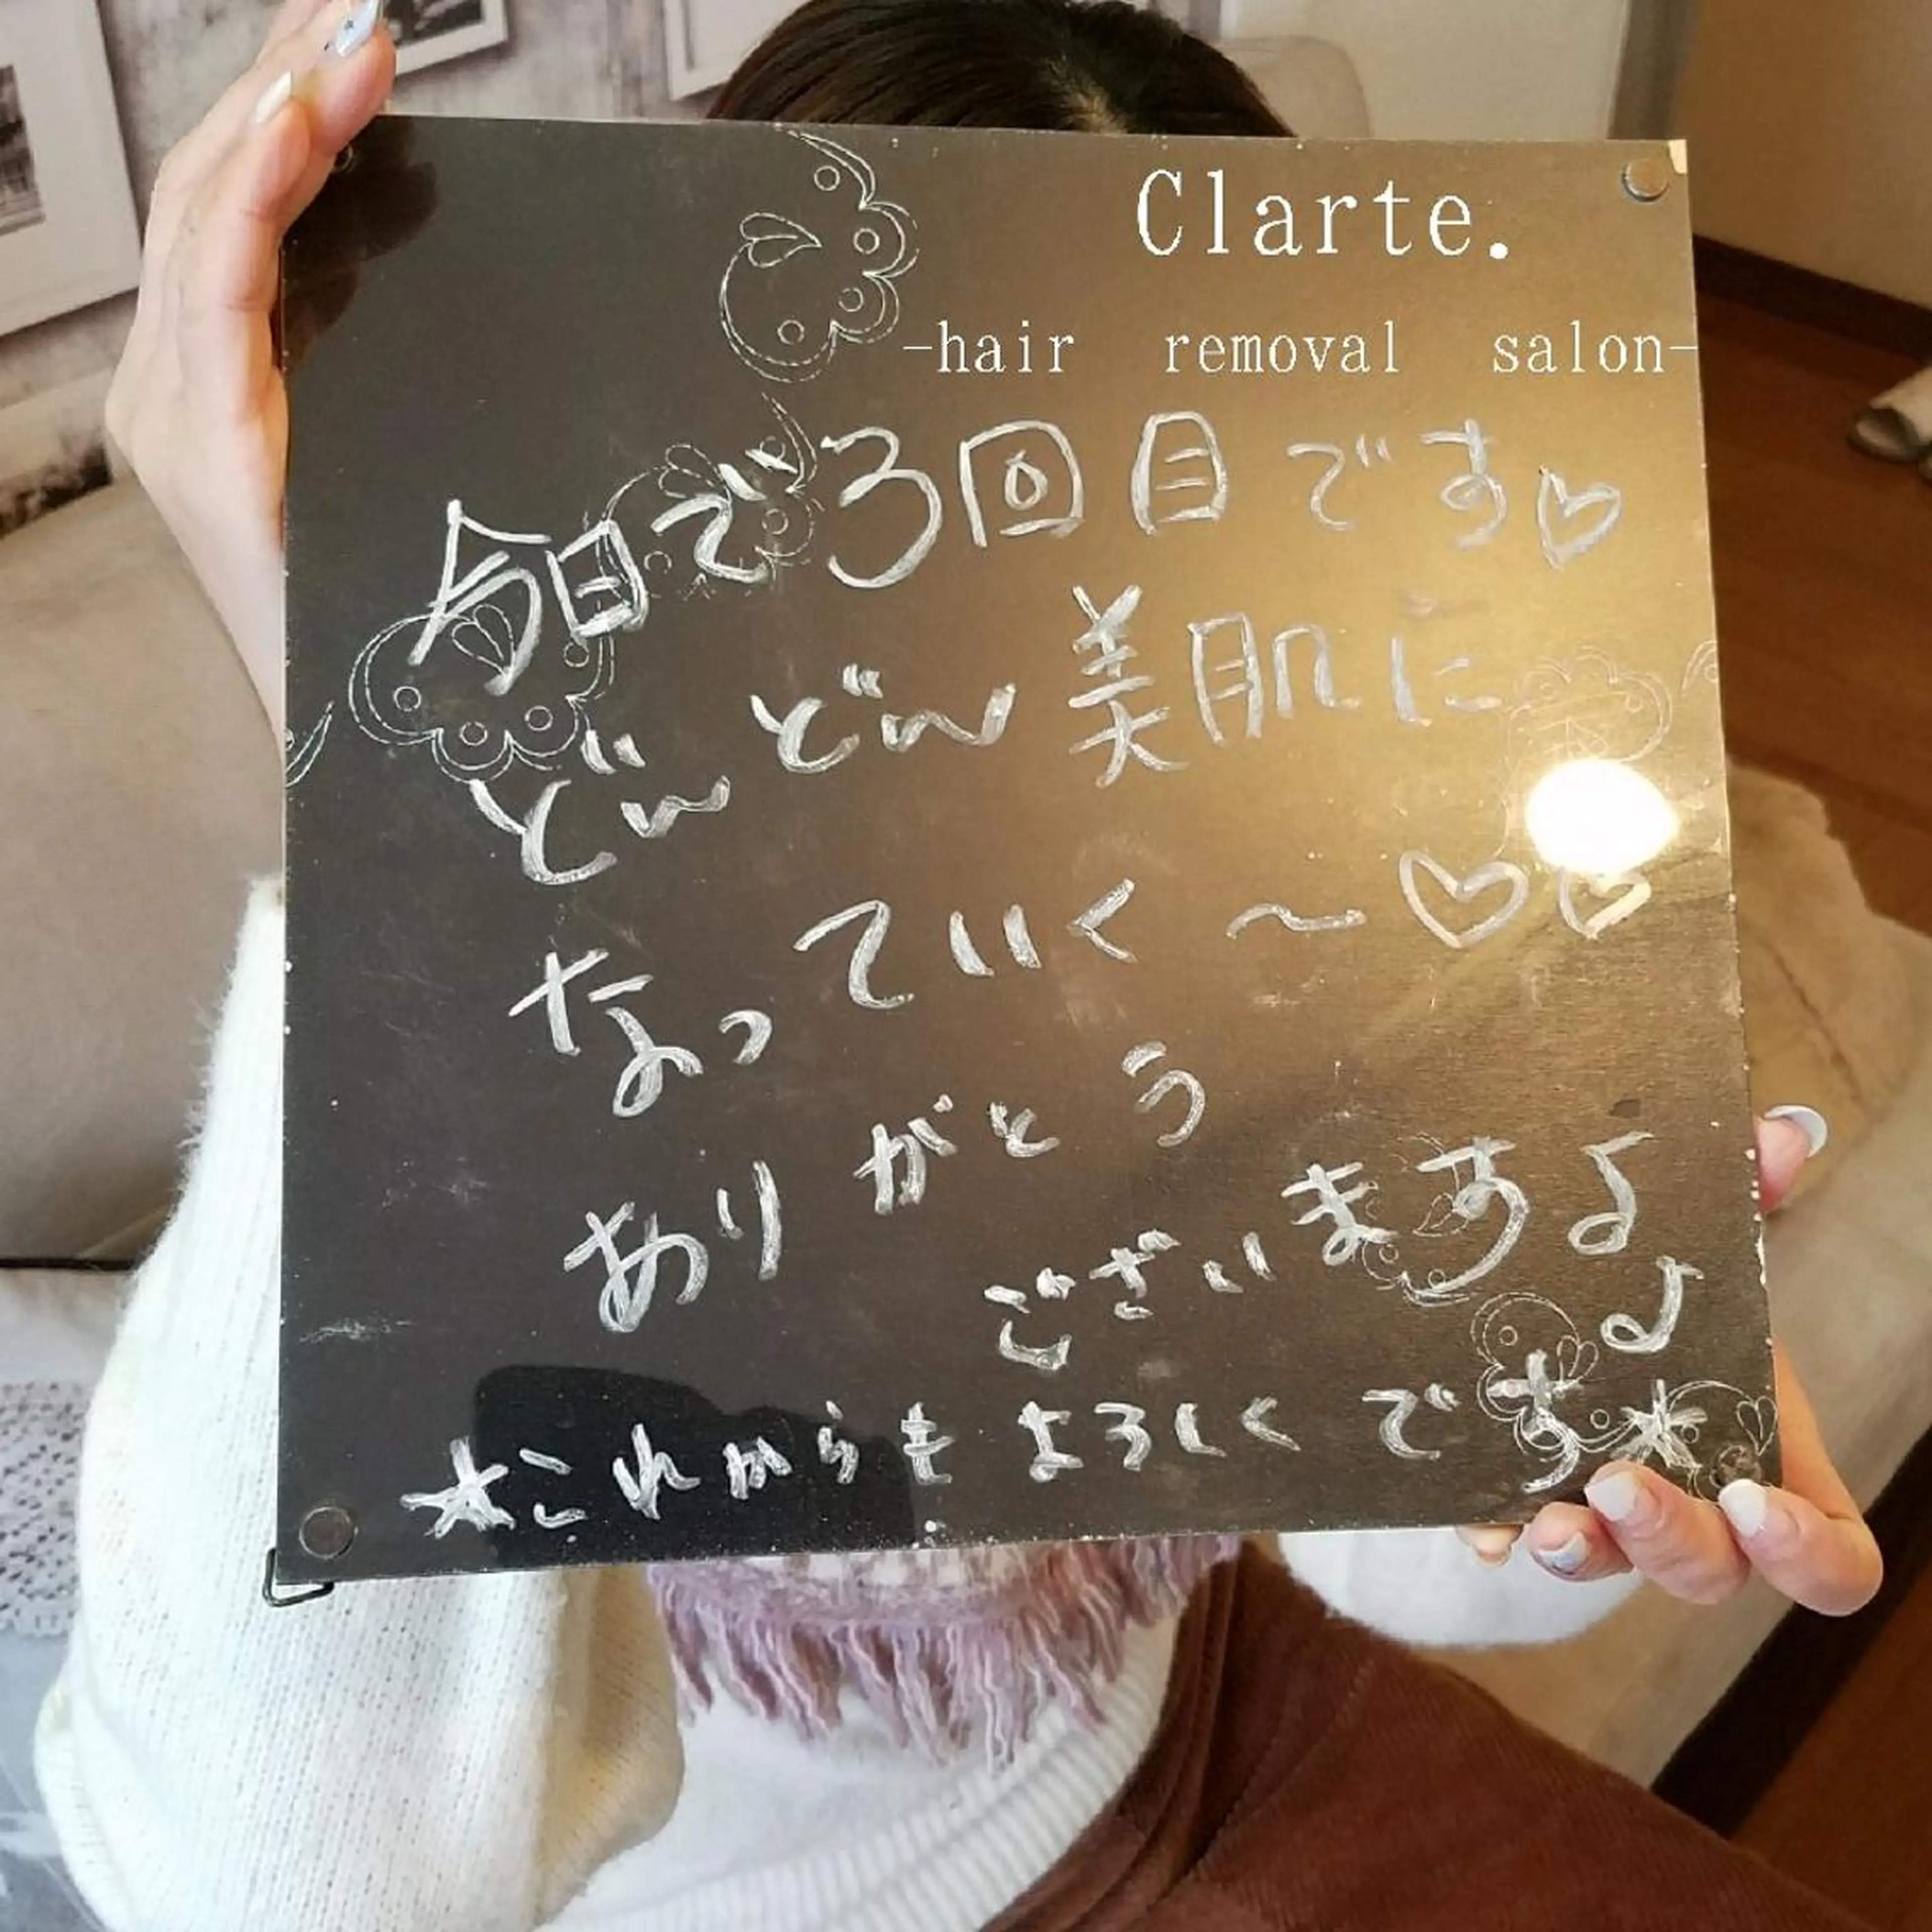 Clarte.
-hair removal salon-
今日で3回目です♡
どんどん美肌に
なっていく～♡♡
ありがとう
ございます♪♪
☆これからもよろしくです☆